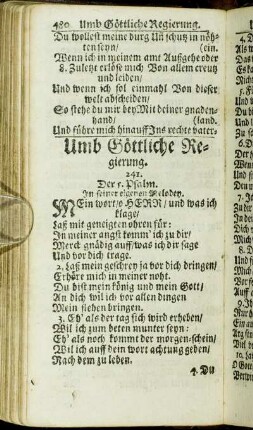 480 Umb Göttliche Regierung.
Du wollest meine burg uñ schutz in nöh-
ten seyn/ (ein.
Wenn ich in meinem amt Außgehe oder
8. Zuletzt erlöse mich Von allem creutz
und leiden/
Und wenn ich sol einmahl Von dieser
welt abscheiden/
So stehe du mir bey Mit deiner gnaden-
hand/ (land.
Und führe mich hinauff Ins rechte vater-
Umb Göttliche Re-
gierung.
241.
Der 5. Psalm.
In seiner eigenen Melodey.
MEin wort/ o HERR/ und was ich
klage/
Laß mit geneigten ohren für:
In meiner angst komm' ich zu dir/
Merck gnädig auff/ was ich dir sage
Und vor dich trage.
2. Laß mein geschrey ja vor dich dringen/
Erhöre mich in meiner noht.
Du bist mein könig und mein Gott/
An dich wil ich vor allen dingen
Mein flehen bringen.
3. Eh' als der tag sich wird erheben/
Wil ich zum beten munter seyn:
Eh' als noch kommt der morgen-schein/
Wil ich auff dein wort achtung geben/
Nach dem zu leben.
4. Du